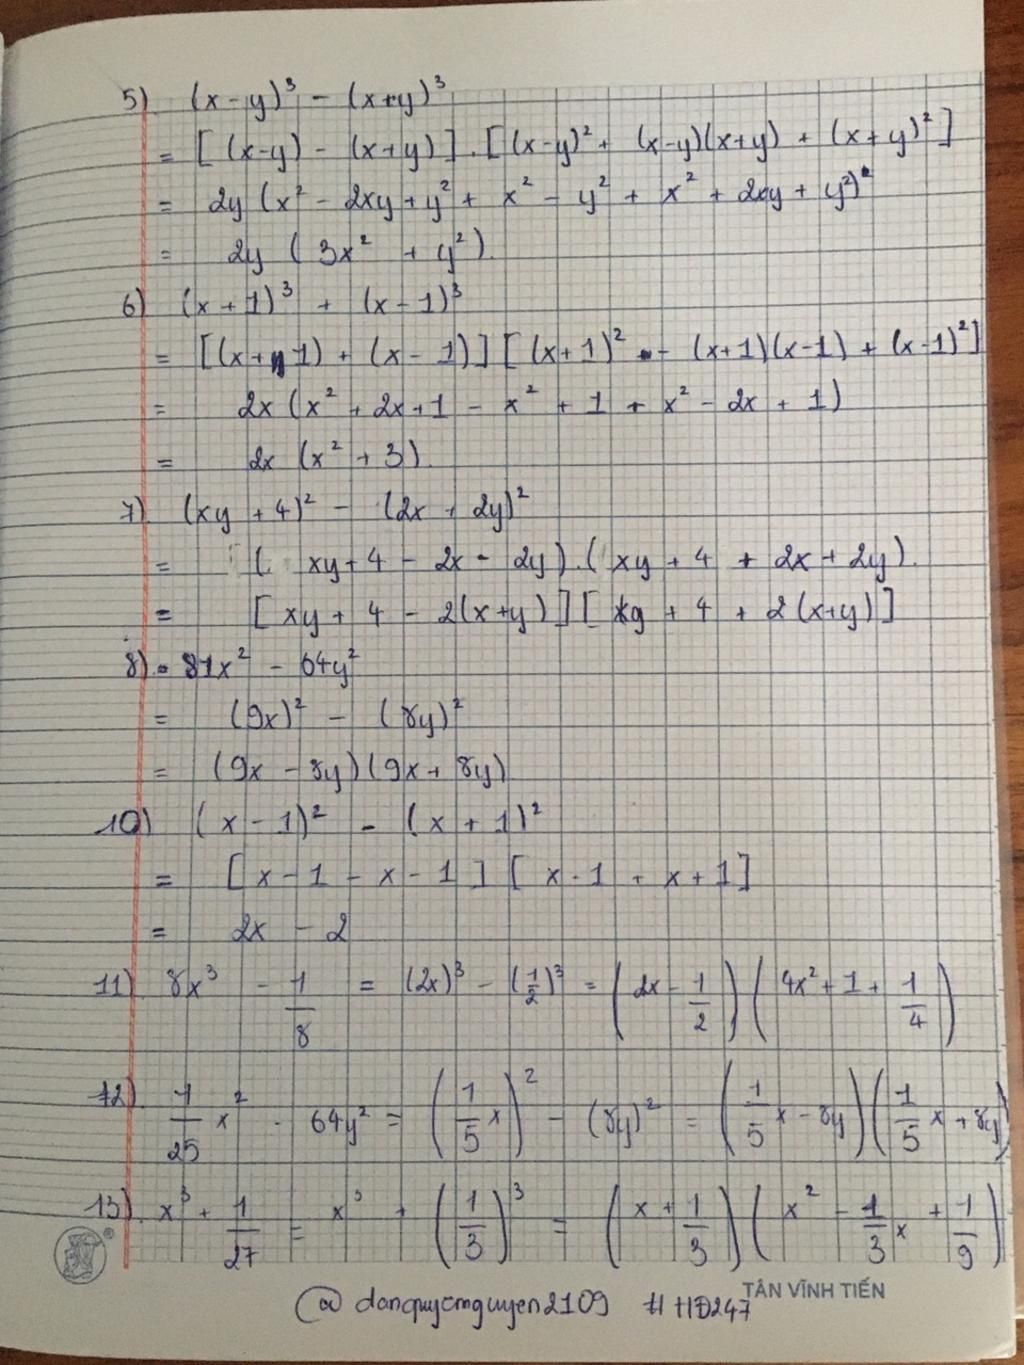 5) (x-y)³ - (x+y)³
= [(x-y) - (x+y)].[(x-y)² + (x-y)(x+y) + (x+y)²]
= 2y (x² - 2xy + y² + x² - y² + x² + 2xy + y²)
= 2y (3x² + y²).
6) (x+1)³ + (x-1)³
= [(x+1) + (x-1)][(x+1)² - (x+1)(x-1) + (x-1)²]
= 2x (x² + 2x + 1 - x² + 1 + x² - 2x + 1)
= 2x (x² + 3).
7) (xy + 4)² - (2x + 2y)²
= (xy + 4 - 2x - 2y).(xy + 4 + 2x + 2y).
= [xy + 4 - 2(x+y)][xy + 4 + 2(x+y)]
8) 81x² - 64y²
= (9x)² - (8y)²
= (9x - 8y)(9x + 8y)
10) (x-1)² - (x+1)²
= [x-1-x-1][x-1+x+1]
= 2x - 2
11) 8x³ - 1/8 = (2x)³ - (1/2)³ = (2x - 1/2)(4x² + 1 + 1/4)
12) 1/25 x² - 64y² = (1/5 x)² - (8y)² = (1/5 x - 8y)(1/5 x + 8y)
13) x³ + 1/27 = x³ + (1/3)³ = (x + 1/3)(x² - 1/3 x + 1/9)
TÂN VĨNH TIẾN
@danquyennguyen2109 #HĐ247